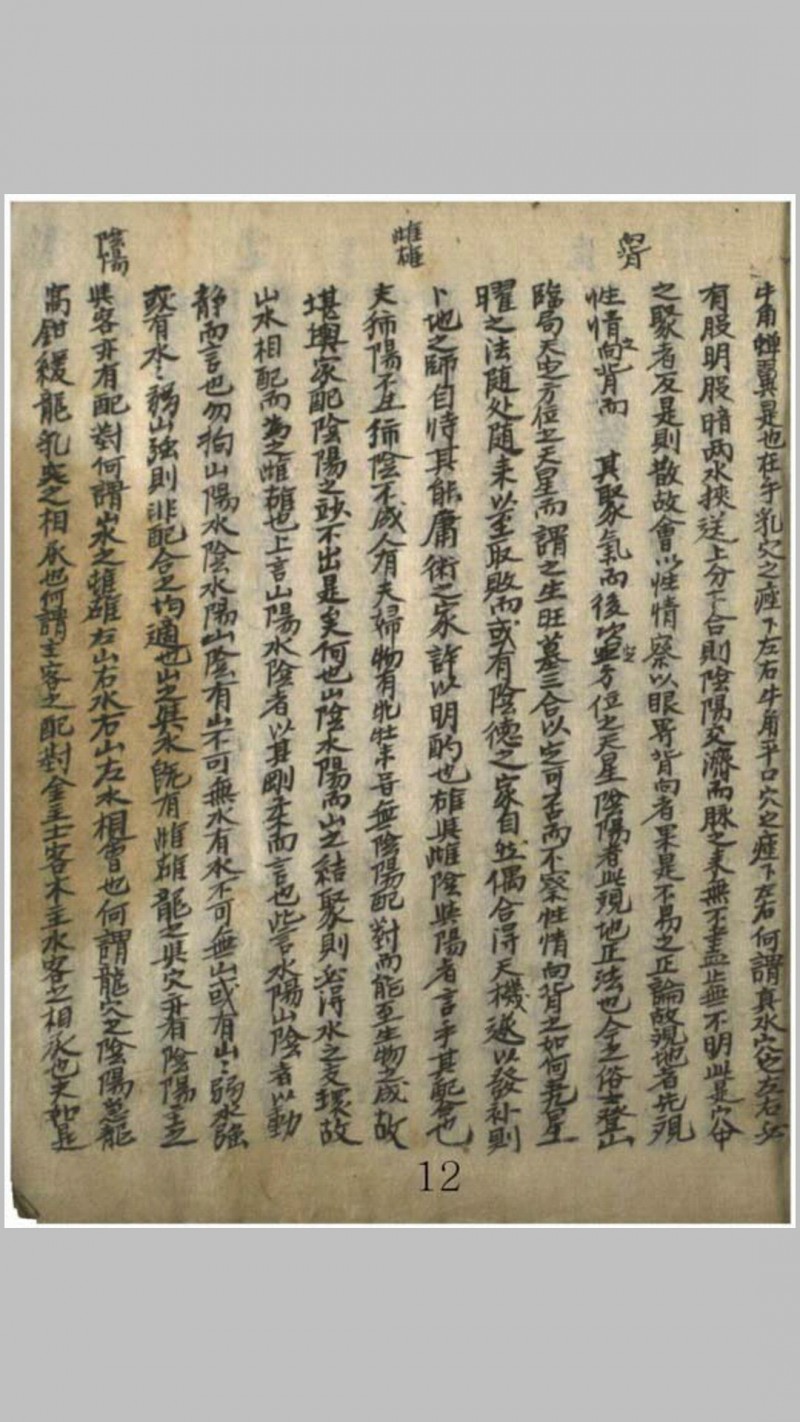 牛角蟬翼是也在乎乳穴之痙下左右牛角乎口穴之痙下左右何謂真水穴之左右必
有股明股暗两水挾送上分下合則陰陽交濟而脉之來無不盡止無不明此是穴中
之聚者反是則散故會以性情察以眼界背向者果是不易之正論故覌地者先覌
性情之向背而 其聚氣而後以定方位之天星陰陽者此覌地正法也今之俗士登山
臨局天定方位之天星而謂之生旺墓三合以定可否而不察性情向背之如何九星
曜之法随处随来以至取敗而或有陰德之家自然偶合得天機遂以發补則
卜地之師自恃其能庸術之家許以明酌也雄與雌陰與陽者言乎其配合也
夫犻陽不生犻陰不成人有夫婦物有牝牡未㝵無陰陽配對而能至生物之成故
堪輿家配陰陽之玅不出是矣何也山陰水陽而山之結聚則必得水之支環故
山水相配而為之雌雄也上言山陽水陰者以其剛柔而言也些言水陽山陰者以動
静而言也勿拘山陽水陰水陽山陰有山不可無水有水不可無山或有山〻弱水強
或有水〻弱山強則非配合之均適也山之與水既有雌雄龍之與穴亦有陰陽〻主
與客亦有配對何謂山水之雌雄左山右水右山左水相會也何謂龍穴之陰陽急龍
窩鉗緩龍乳突之相承也何謂主客之配對金主土客木主水客之相承也夫如是
雌雄
陰陽
12